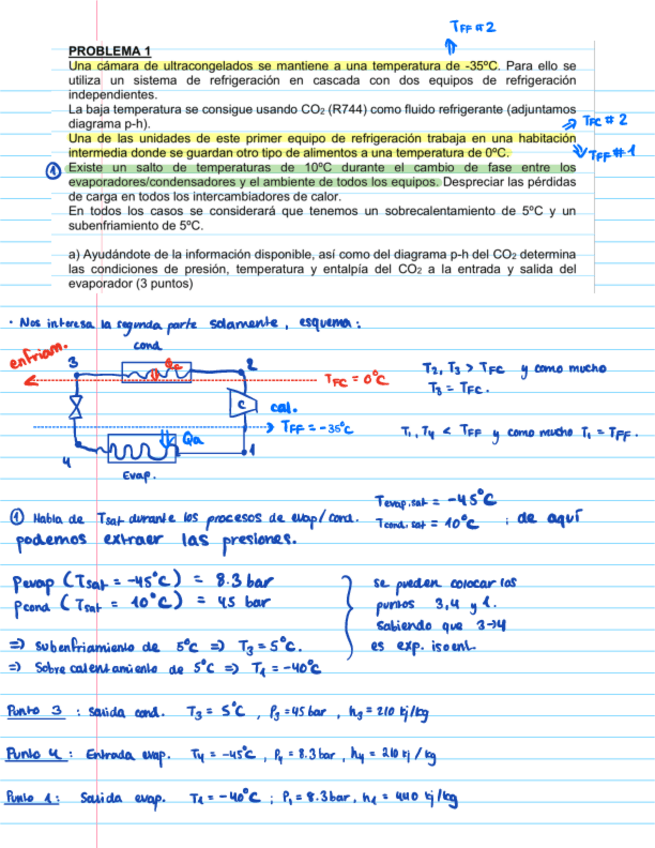 TFF #2
PROBLEMA 1
Una cámara de ultracongelados se mantiene a una temperatura de -35ºC. Para ello se
utiliza un sistema de refrigeración en cascada con dos equipos de refrigeración
independientes.
La baja temperatura se consigue usando CO2 (R744) como fluido refrigerante (adjuntamos
diagrama p-h).
TFC #2
Una de las unidades de este primer equipo de refrigeración trabaja en una habitación
intermedia donde se guardan otro tipo de alimentos a una temperatura de 0ºC.
TFF #1
① Existe un salto de temperaturas de 10ºC durante el cambio de fase entre los
evaporadores/condensadores y el ambiente de todos los equipos. Despreciar las pérdidas
de carga en todos los intercambiadores de calor.
En todos los casos se considerará que tenemos un sobrecalentamiento de 5ºC y un
subenfriamiento de 5ºC.
a) Ayudándote de la información disponible, así como del diagrama p-h del CO2 determina
las condiciones de presión, temperatura y entalpía del CO2 a la entrada y salida del
evaporador (3 puntos)
· Nos interesa la segunda parte solamente, esquema:
cond
enfriam.
3
Qc
2
TFC = 0ºC
C
cal.
TFF = -35ºC
Qa
4
1
Evap.
T2, T3 > TFC y como mucho
T3 = TFC.
T1, T4 < TFF y como mucho T1 = TFF.
① Habla de Tsat durante los procesos de evap/cond.
Tevap.sat = -45ºC
Tcond.sat = 10ºC ; de aquí
podemos extraer las presiones.
Pevap (Tsat = -45ºC) = 8.3 bar
Pcond (Tsat = 10ºC) = 45 bar
se pueden colocar los
puntos 3,4 y 1.
Sabiendo que 3→4
es exp. isoent.
⇒ Subenfriamiento de 5ºC ⇒ T3 = 5ºC.
⇒ Sobrecalentamiento de 5ºC ⇒ T1 = -40ºC
Punto 3 : Salida cond. T3 = 5ºC, P3 = 45 bar, h3 = 210 kj/kg
Punto 4 : Entrada evap. T4 = -45ºC, P4 = 8.3 bar, h4 = 210 kj/kg
Punto 1 : Salida evap. T1 = -40ºC ; P1 = 8.3 bar, h1 = 440 kj/kg